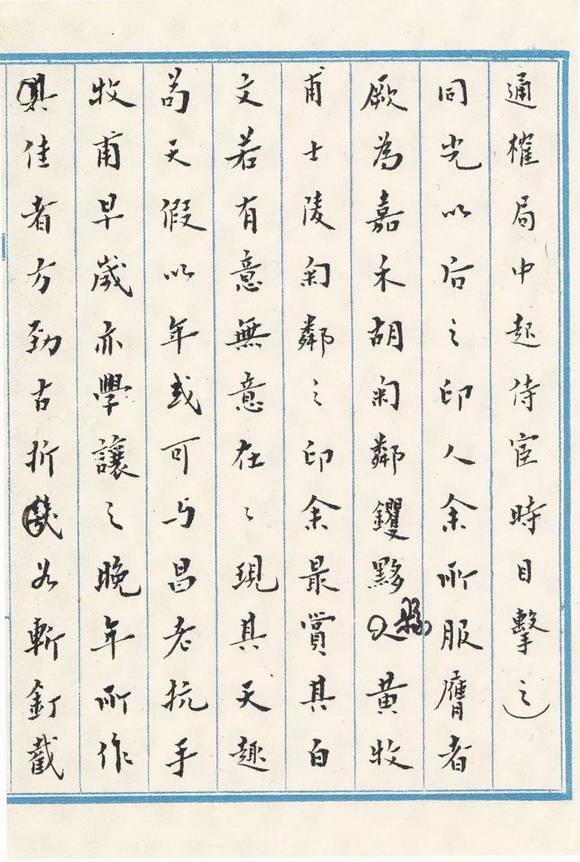 通榷局中起侍宦時目擊之）
同光以后之印人余所服膺者
厥為嘉禾胡匊鄰钁黟縣黄牧
甫士陵匊鄰之印余最賞其白
文若有意無意在々現其天趣
苟天假以年或可与昌老抗手
牧甫早歲亦學讓之晚年所作
其佳者方勁古折如斬釘截